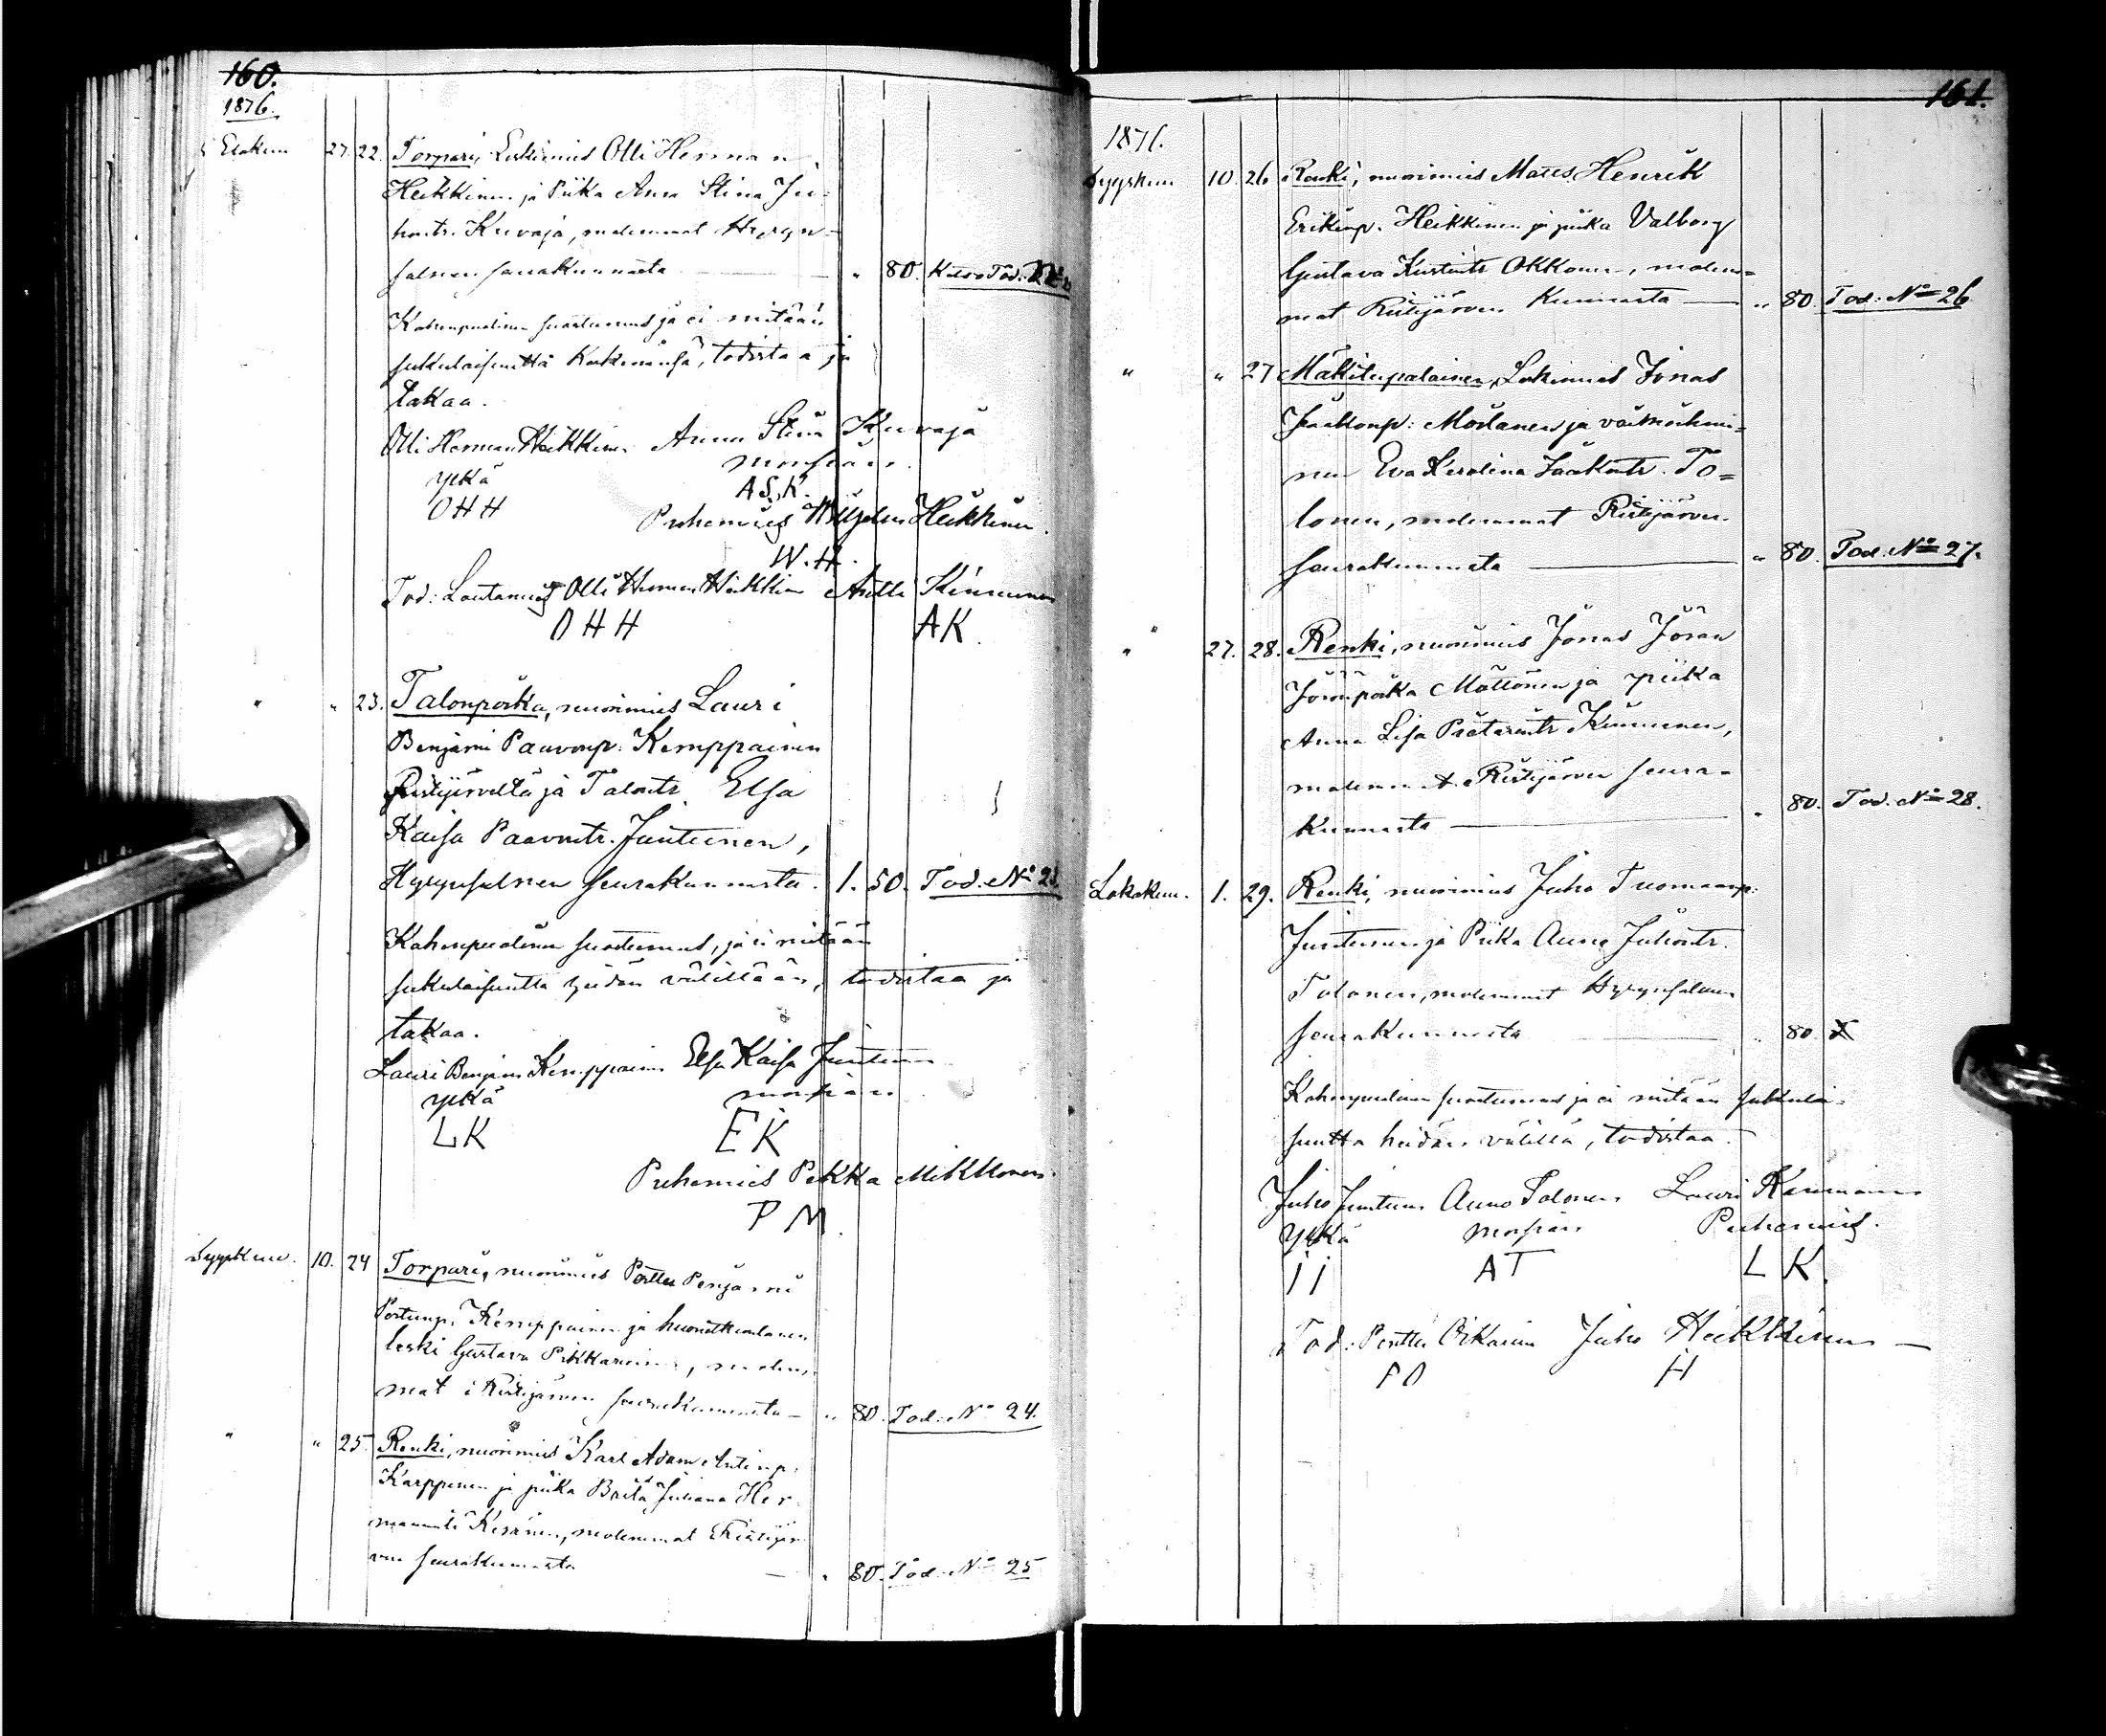 160.
1876.
Elokuu 27. 22. Torpari, Leskimies Olli Herman
Heikkinen ja Piika Anna Stina Ju-
hontr. Kuvaja, molemmat Hyryn-
salmen seurakunnasta — " 80. Katso Tod.
Kahenpuolinen suostumus ja ei mitään
sukulaisuutta Keskenänsä, todistaa ja
takaa.
Olli Herman Heikkinen Anna Stina Kuvaja
ylkä morsian.
OHH A S. K.
Puhemies Wilhelm Heikkinen.
W. H.
Tod: Lautamies Olli Herman Heikkinen Antti Kinnunen
OHH AK.
" " 23. Talonpoika, nuorimies Lauri
Benjami Paavonp: Kemppainen
Ristijärveltä ja Talontr. Elsa
Kaisa Paavontr. Juntunen,
Hyrynsalmen seurakunnasta. 1. 50. Tod. No 23.
Kahenpuolinen suostumus, ja ei mitään
sukulaisuutta heidän välillään, todistaa ja
takaa.
Lauri Benjami Kemppainen Elsa Kaisa Juntunen
ylkä morsian
LK EK
Puhemies Pekka Mikkonen.
P M.
Syyskuu. 10. 24 Torpari, nuorimies Perttu Penjami
Pertunp. Kemppainen ja huonetkuntanen
leski Gustava Pikkarainen, molem-
mat Ristijärven seurakunnasta — " 80. Tod. No 24.
" " 25. Renki, nuorimies Karl Adam Antinp.
Karppinen ja piika Brita Juliana Her-
mannintr Keränen, molemmat Ristijär-
ven seurakunnasta — " 80. Tod. No 25
161.
1876.
Syyskuu 10. 26 Renki, nuorimies Matts Henrik
Erikinp. Heikkinen ja piika Valborg
Gustava Kustintr Okkonen, molem=
mat Ristijärven Kunnasta — " 80. Tod. No 26
" " 27 Mäkitupalainen, Leskimies Jonas
Jaakonp: Moilanen ja
nen Eva Karolina Jaakontr. To=
lonen, molemmat Ristijärven
seurakunnasta — " 80. Tod. No 27.
" 27. 28. Renki, nuorimies Jonas Jöran
Jöranpoika Möttönen ja piika
Anna Lisa Kinnunen,
molemmat Ristijärven seura-
kunnasta — " 80. Tod. No 28.
Lokakuu. 1. 29. Renki, nuorimies Juho Tuomaanp.
Juntunen ja Piika Anna Juhontr.
Tolonen, molemmat Hyrynsalmen
seurakunnasta — " 80. X
Kahenpuolinen suostumus ja ei mitään sukulai-
suutta heidän välillä, todistaa.
Juho Juntunen Anna Tolonen Lauri Kinnunen
ylkä morsian Puhemies.
JJ AT L K.
Tod: Perttu Oikarinen Juho Heikkinen —
PO H